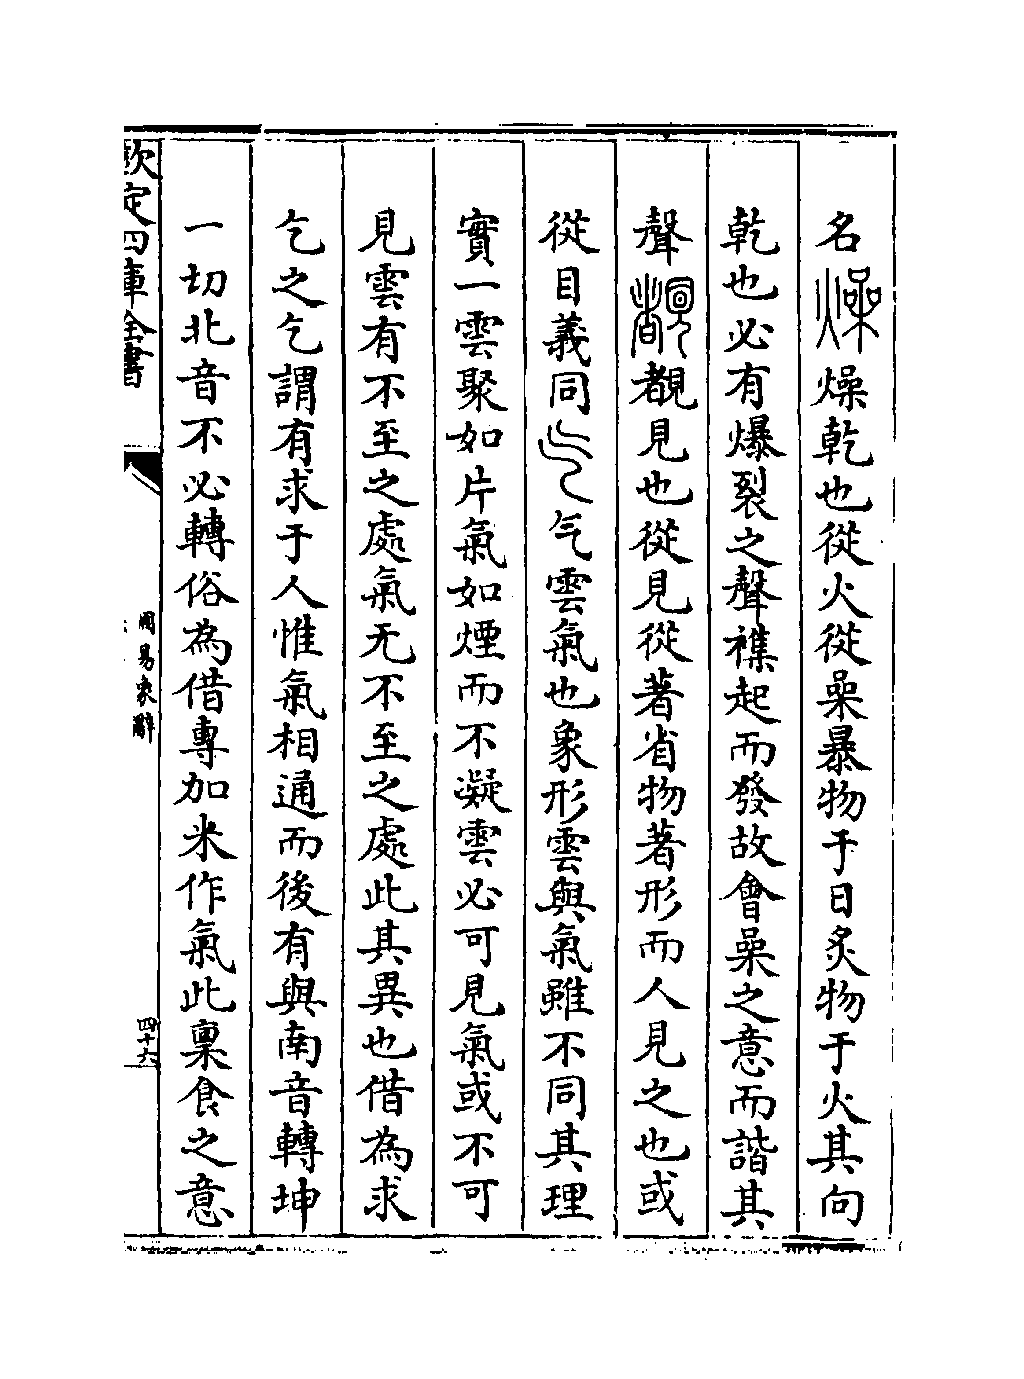 名燥燥乾也從火從喿暴物于日炙物于火其向
乾也必有爆裂之聲襍起而發故會喿之意而諧其
聲覩覩見也從見從著省物著形而人見之也或
從目義同气气雲氣也象形雲與氣雖不同其理
實一雲聚如片氣如煙而不凝雲必可見氣或不可
見雲有不至之處氣无不至之處此其異也借為求
乞之乞謂有求于人惟氣相通而後有與南音轉坤
一切北音不必轉俗為借專加米作氣此稟食之意
欽定四庫全書
周易象辭
四十六